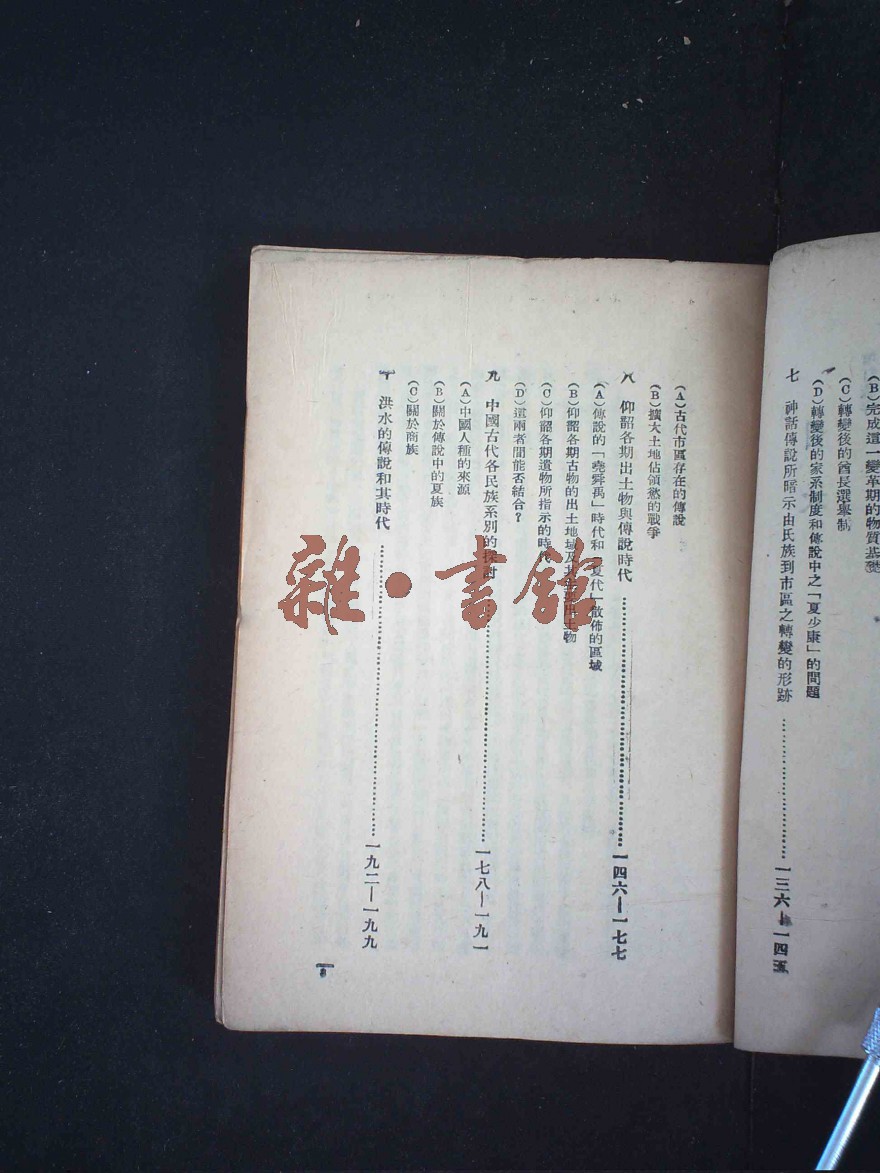 (B)完成這一變革期的物質基礎
(C)轉變後的酋長選舉制
(D)轉變後的家系制度和傳說中之「夏少康」的問題
七 神話傳說所暗示由氏族到市區之轉變的形跡……一三六—一四五
(A)古代市區存在的傳說
(B)擴大土地佔領慾的戰爭
八 仰韶各期出土物與傳說時代……一四六—一七七
(A)傳說的「堯舜禹」時代和「夏代」散佈的區域
(B)仰韶各期古物的出土地域及其 出土物
(C)仰韶各期遺物所指示的時代
(D)這兩者間能否結合？
九 中國古代各民族系別的探討……一七八—一九一
(A)中國人種的來源
(B)關於傳說中的夏族
(C)關於商族
十 洪水的傳說和其時代……一九二—一九九
雜·書館